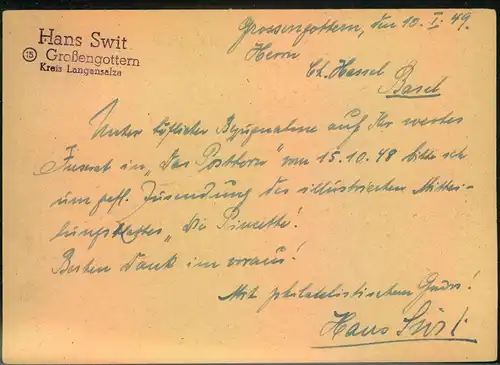 Hans Swit
(15) Großengottern
Kreis Langensalza
Grossengottern, den 10. I. 49.
Herrn
Ch. Hassel
Basel
Unter höflicher Bezugnahme auf Ihr wertes
Inserat in „Das Posthorn" vom 15.10.48 bitte ich
um gefl. Zusendung des illustrierten Mittei-
lungsblattes „Die Pincette!
Besten Dank im voraus!
Mit philatelistischem Gruss!
Hans Swit